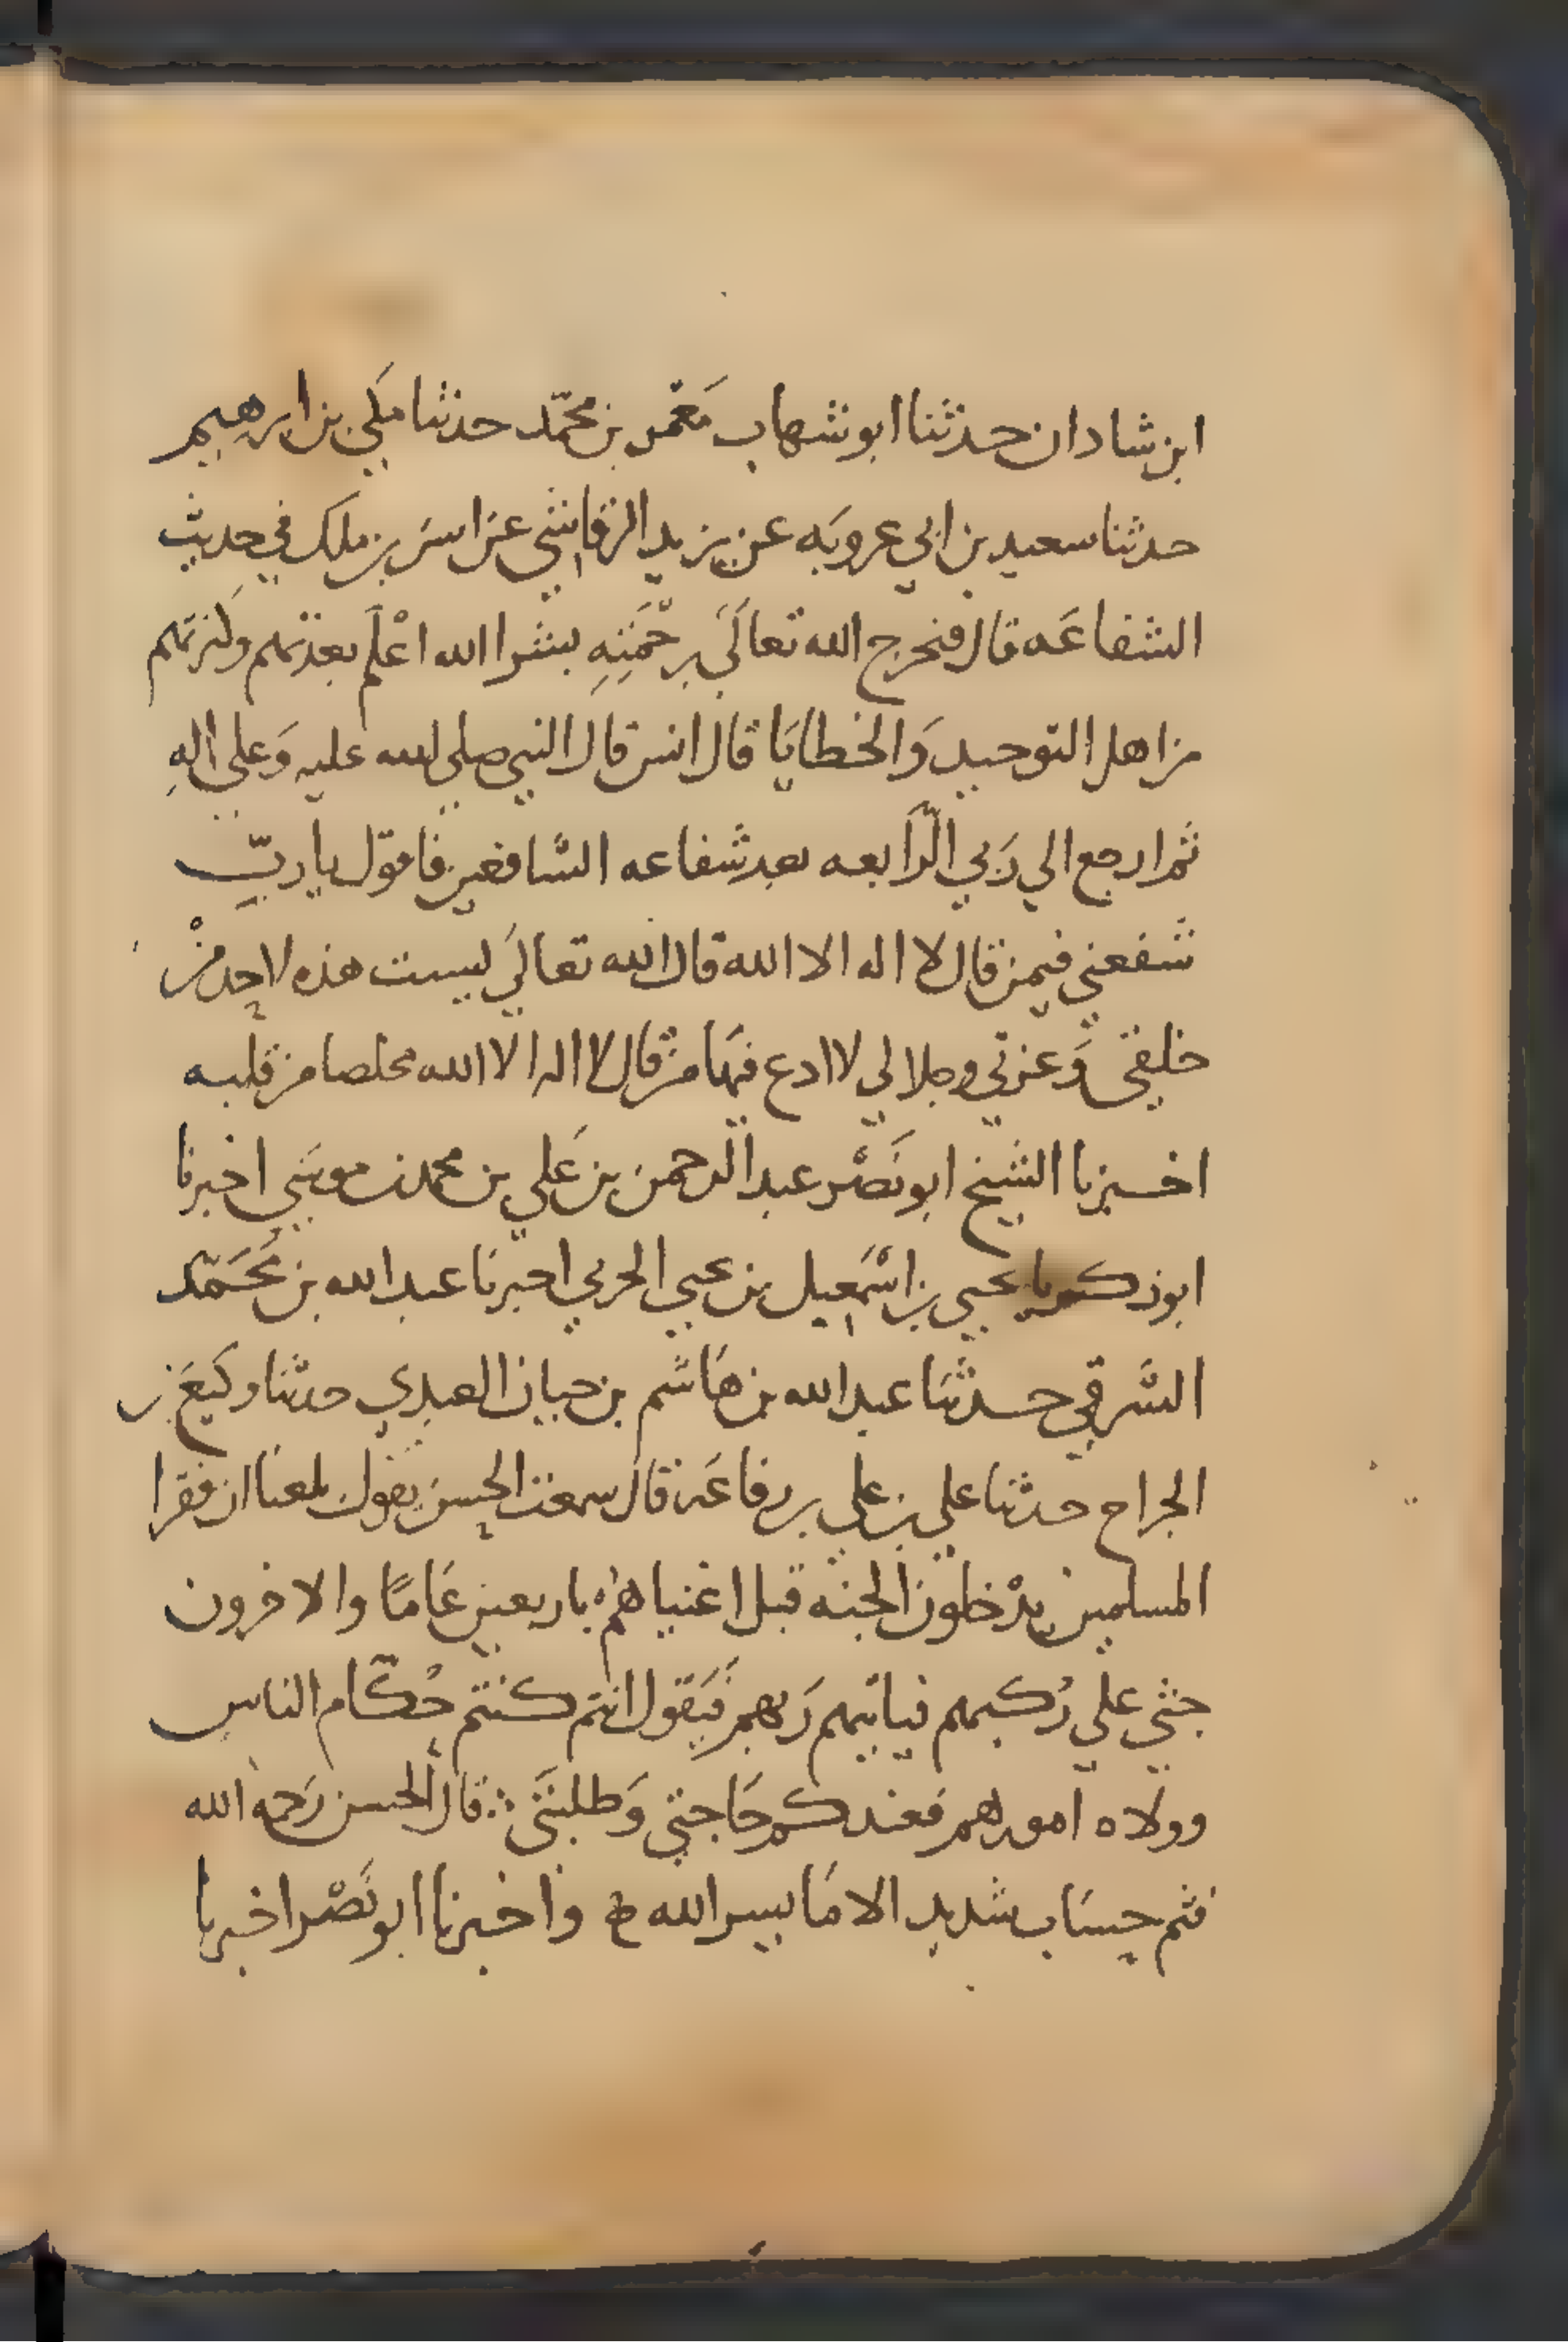 ابن شادان حدثنا ابو شهاب مَعْمر بن محمّد حدثنا مكي بن ابرهيم
حدثنا سعيد بن ابي عروبَه عن يزيد الرقاشي عن انس بن ملك في حديث
الشفاعَه قال فيخرج الله تعالَي برحْمَتِهِ بشرا الله اعْلم بعدتهم وكثرتهم
من اهل التوحيد وَالخطايَا قال انس قال النبي صلى الله عليه وَعلى الهِ
ثم ارجع الي رَبي الرَّابعه بعد شفاعه الشافعين فاقول يا ربّ
شفعني فيمن قال لا اله الا الله قال الله تعالَي ليست هذه لاحد منْ
خلقي وَعزتي وجلالي لا ادع فيها من قال لا اله الا الله مخلصا من قلبه
اخبرنا الشيخ ابو نَصْر عبد الرحمن بن عَلي بن محمد بن موسَي اخبرنا
ابو زكريا يحيي بن اسْمَعيل بن يحيي الحربي اخبرنَا عبد الله بن مُحَمّد
الشرقي حدثنَا عبد الله بن هَاشم بن حيان العبدي حدثنا وكيعَ بن
الجراح حدثنا علي بن علي بن رفاعَة قال سمعت الحسن يَقول بلغنا ان فقرا
المسلمين يدْخلون الجنه قبل اغنياهم باربعين عَامًا والاخرون
جثي علي رُكبهم فياتيهم رَبهم فَيَقول انتم كنتم حُكّام الناس
وولاه امورهم فعندكم حَاجتي وَطلبتَي ∴ قال الحسن رَحمه الله
فثم حِسَاب شديد الا مَا يسر الله ح واخبرنا ابو نَصْر اخبرنا